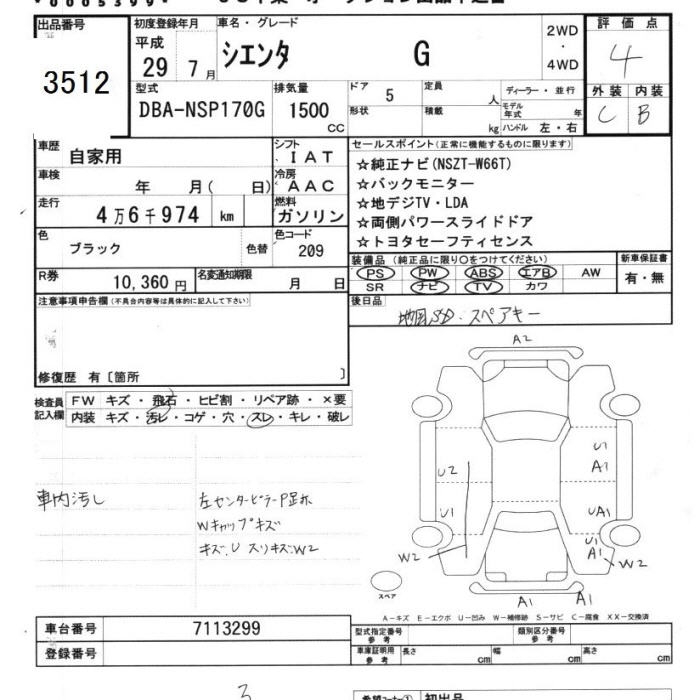 出品番号
3512
初度登録年月
平成
29 7月
車名・グレード
シエンタ G
2WD
・
4WD
評価点
4
外装 内装
C B
型式
DBA-NSP170G
排気量
1500
CC
ドア 5
形状
定員 人
積載 kg
ディーラー・並行
モデル年式 年
ハンドル 左・右
車歴 自家用
シフト IAT
車検 年 月( 日)
冷房 AAC
走行 4万6千974 km
燃料 ガソリン
色 ブラック 色替
色コード 209
R券 10,360円
名変通知期限 月 日
セールスポイント(正常に機能するものに限ります)
☆純正ナビ(NSZT-W66T)
☆バックモニター
☆地デジTV・LDA
☆両側パワースライドドア
☆トヨタセーフティセンス
装備品 (純正品に限り○をつけてください)
PS PW ABS エアB AW
SR ナビ TV カワ
新車保証書
有・無
後日品
地図SD・スペアキー
注意事項申告欄(不具合内容等は具体的に記入して下さい)
修復歴 有〔箇所 〕
検査員記入欄
FW キズ・飛石・ヒビ割・リペア跡・×要
内装 キズ・汚レ・コゲ・穴・スレ・キレ・破レ
車内汚し
左センターピラーP足れ
Wキャップキズ
キズ、U スリキズ、W2
A2
U2
U1
W2
U1
A1
UA1
U1
A1
W2
A1
A1
スペア
A-キズ E-エクボ U-凹み W-補修跡 S-サビ C-腐食 XX-交換済
車台番号 7113299
登録番号
型式指定番号 参考
類別区分番号 参考
車庫証明用 参考
長さ cm 幅 cm 高さ cm
3
初出品